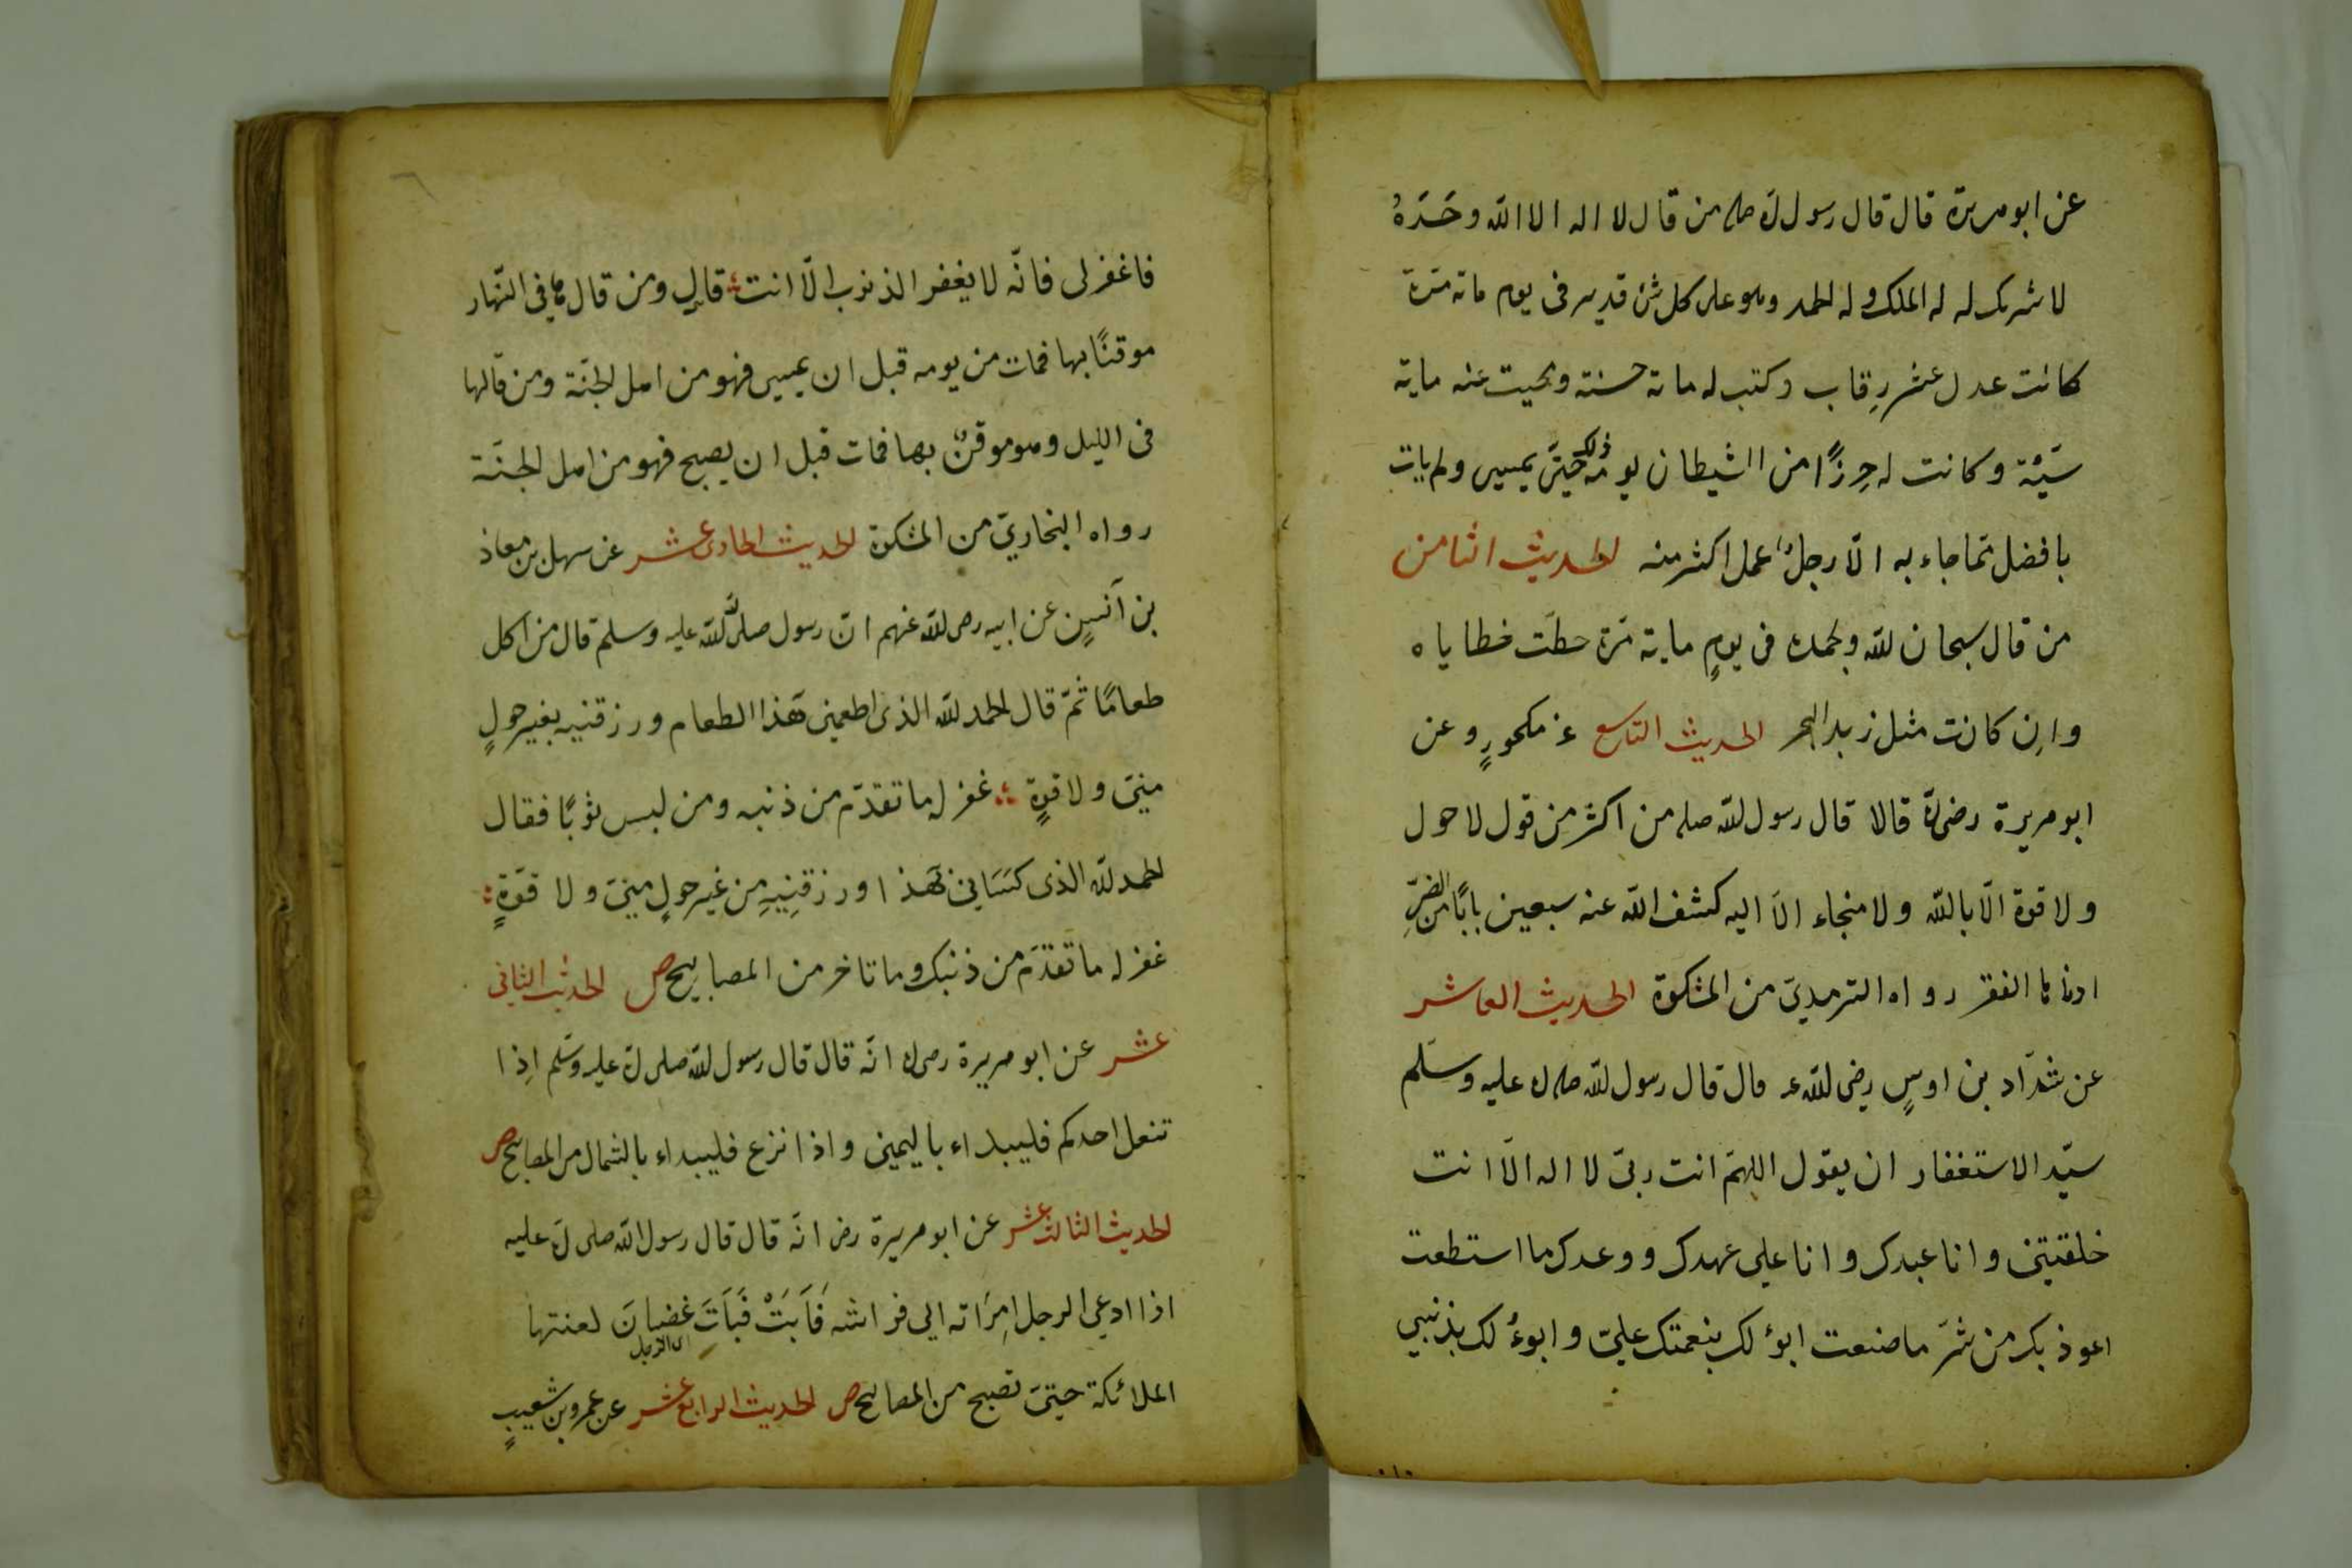 عن ابو هريرة قال قال رسول الله صلم من قال لا اله الا الله وحَدَهُ
لا شريك له له الملك وله الحمد وهو على كل شئ قدير فى يوم ماته مرّة
كانت عدل عشر رِقاب وكتب له ماته حسنة ومحيت عنه ماية
سَيّئة وكانت له حِرزًا من الشيطان يومه ذلك حتىّ يمسى ولم يات
بافضل مّما جاء به الّا رجلٌ عمل اكثر منه الحديث الثامن
من قال سبحان الله وبحمده فى يومٍ ماية مرّة حطّت خطاياه
وان كانت مثل زبد البحر الحديث التاسع عن مكحورٍ وعن
ابو هريرة رضى الله قالا قال رسول الله صلم من اكثر من قول لا حول
ولا قوة الّا بالله ولا منجاء الّا اليه كشف الله عنه سبعين بابًا من الضرِّ
ادناها الفقر رواه الترمديّ من المشكوة الحديث العاشر
عن شدّاد بن اوسٍ رضى الله عنه قال قال رسول الله صلى الله عليه وسلم
سيّد الاستغفار ان يقول اللهمّ انت ربىّ لا اله الّا انت
خلقتينى وانا عبدك وانا على عهدك ووعدك ما استطعت
اعوذ بك من شرّ ما صنعت ابؤ لك بنعمتك علىّ وابوءُ لك بذنبى
فاغفر لى فانّه لا يغفر الذنوب الّا انت قال ومن قالها فى النّهار
موقنًا بها فمات من يومه قبل ان يمسى فهو من اهل الجنّة ومن قالها
فى الليل وهو موقنٌ بها فمات قبل ان يصبح فهو من اهل الجنّة
رواه البخاريّ من المشكوة الحديث الحادى عشر عن سهل بن معاذ
بن اَنسٍ عن ابيه رضى الله عنهم انّ رسول الله صلى الله عليه وسلم قال من اكل
طعامًا ثمّ قال الحمد لله الذى اطعمنى هذا الطعام ورزقنيه بغير حولٍ
منىّ ولا قوةٍ غفر له ما تقدّم من ذنبه ومن لبس ثوبًا فقال
الحمد لله الذى كسَانى هَذا ورزقنِيهِ من غير حولٍ منىّ ولا قوّةٍ
غفر له ما تقدّم من ذنبك وما تاخر من المصابيح ص الحديث الثانى
عشر عن ابو هريرة رضى الله انّه قال قال رسول الله صلى الله عليه وسلم اِذا
تنعل احدكم فليبداء باليمين واذا نزع فليبداء بالشمال من المصابيح ص
الحديث الثالث عشر عن ابو هريرة رض انّه قال قال رسول الله صلى الله عليه
اذا ادعى الرجل امرَاته الى فراشه فَاَبَتْ فَبَاتَ غضبانَ لعنتها
اى الرجل
الملائكة حتىّ تصبح من المصابيح ص الحديث الرابع عشر عن عمرو بن شعيبٍ